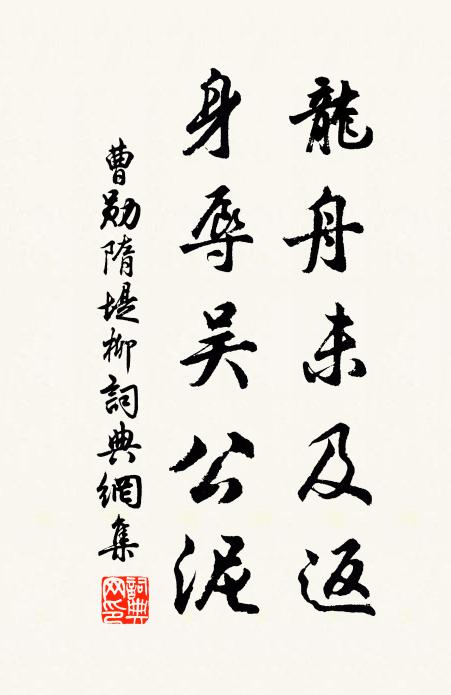 龍舟未及返
身辱吴公泥
曹勛隋堤柳詞典網集
詞典网印